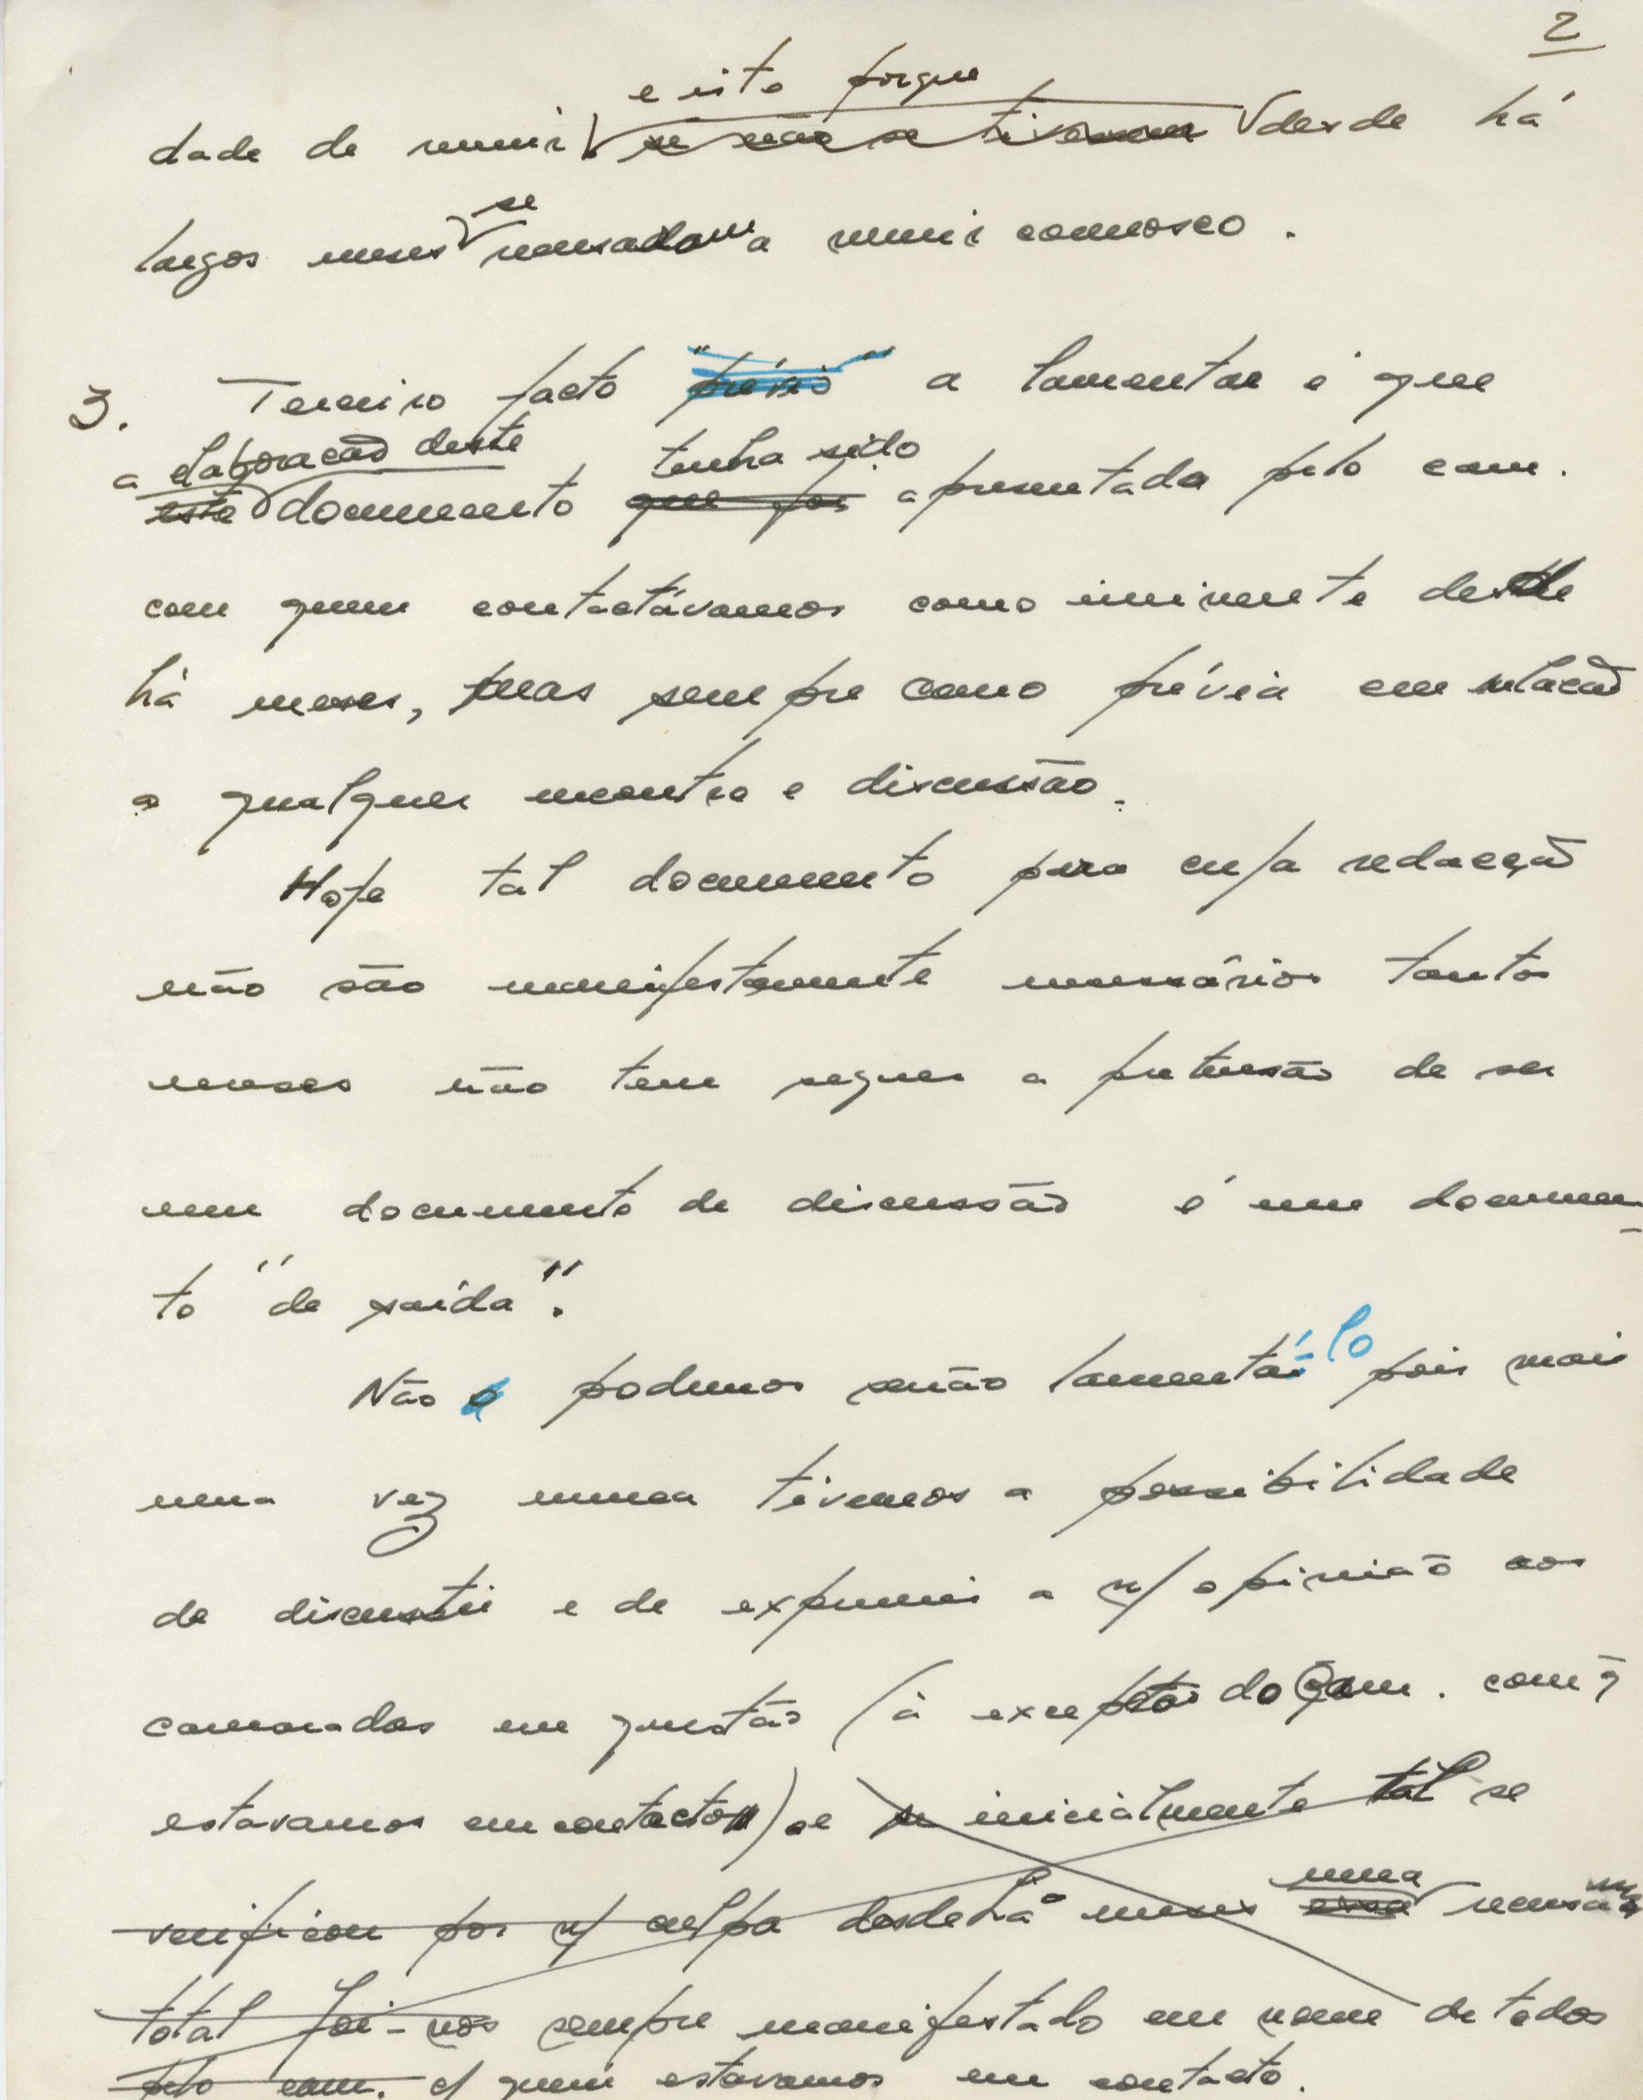 2
e isto porque
dade de reunir se não se tivessem desde há
se
largos meses recusaram a reunir connosco.
3. Terceiro facto "prévio" a lamentar é que
a elaboração deste tenha sido
este documento que foi apresentada pelo cam.
com quem contactávamos como iminente desde
há meses, mas sempre como prévia em relação
a qualquer encontro e discussão.
Hoje tal documento para cuja redacção
não são manifestamente necessários tantos
meses não tem sequer a pretensão de ser
um documento de discussão é um documen-
to "de saída".
Não o podemos senão lamentá-lo pois mais
uma vez nunca tivemos a possibilidade
de discutir e de exprimir a n/ opinião aos
camaradas em questão (à excepção do cam. com q
estavamos em contacto) se inicialmente tal se
uma
verificou por n/ culpa desde há meses essa recusa
total foi-nos sempre manifestado em nome de todos
pelo cam. c/ quem estavamos em contacto.